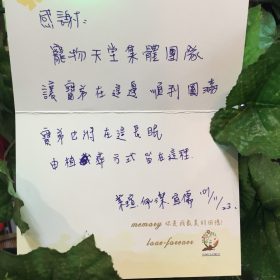 感謝:
寵物天堂集體團隊
讓寶弟在這邊順利圓滿
寶弟也將在這長眠
由植葬方式留在這裡.
101/11/23.
memory 你是我最真的回憶!
love-forever